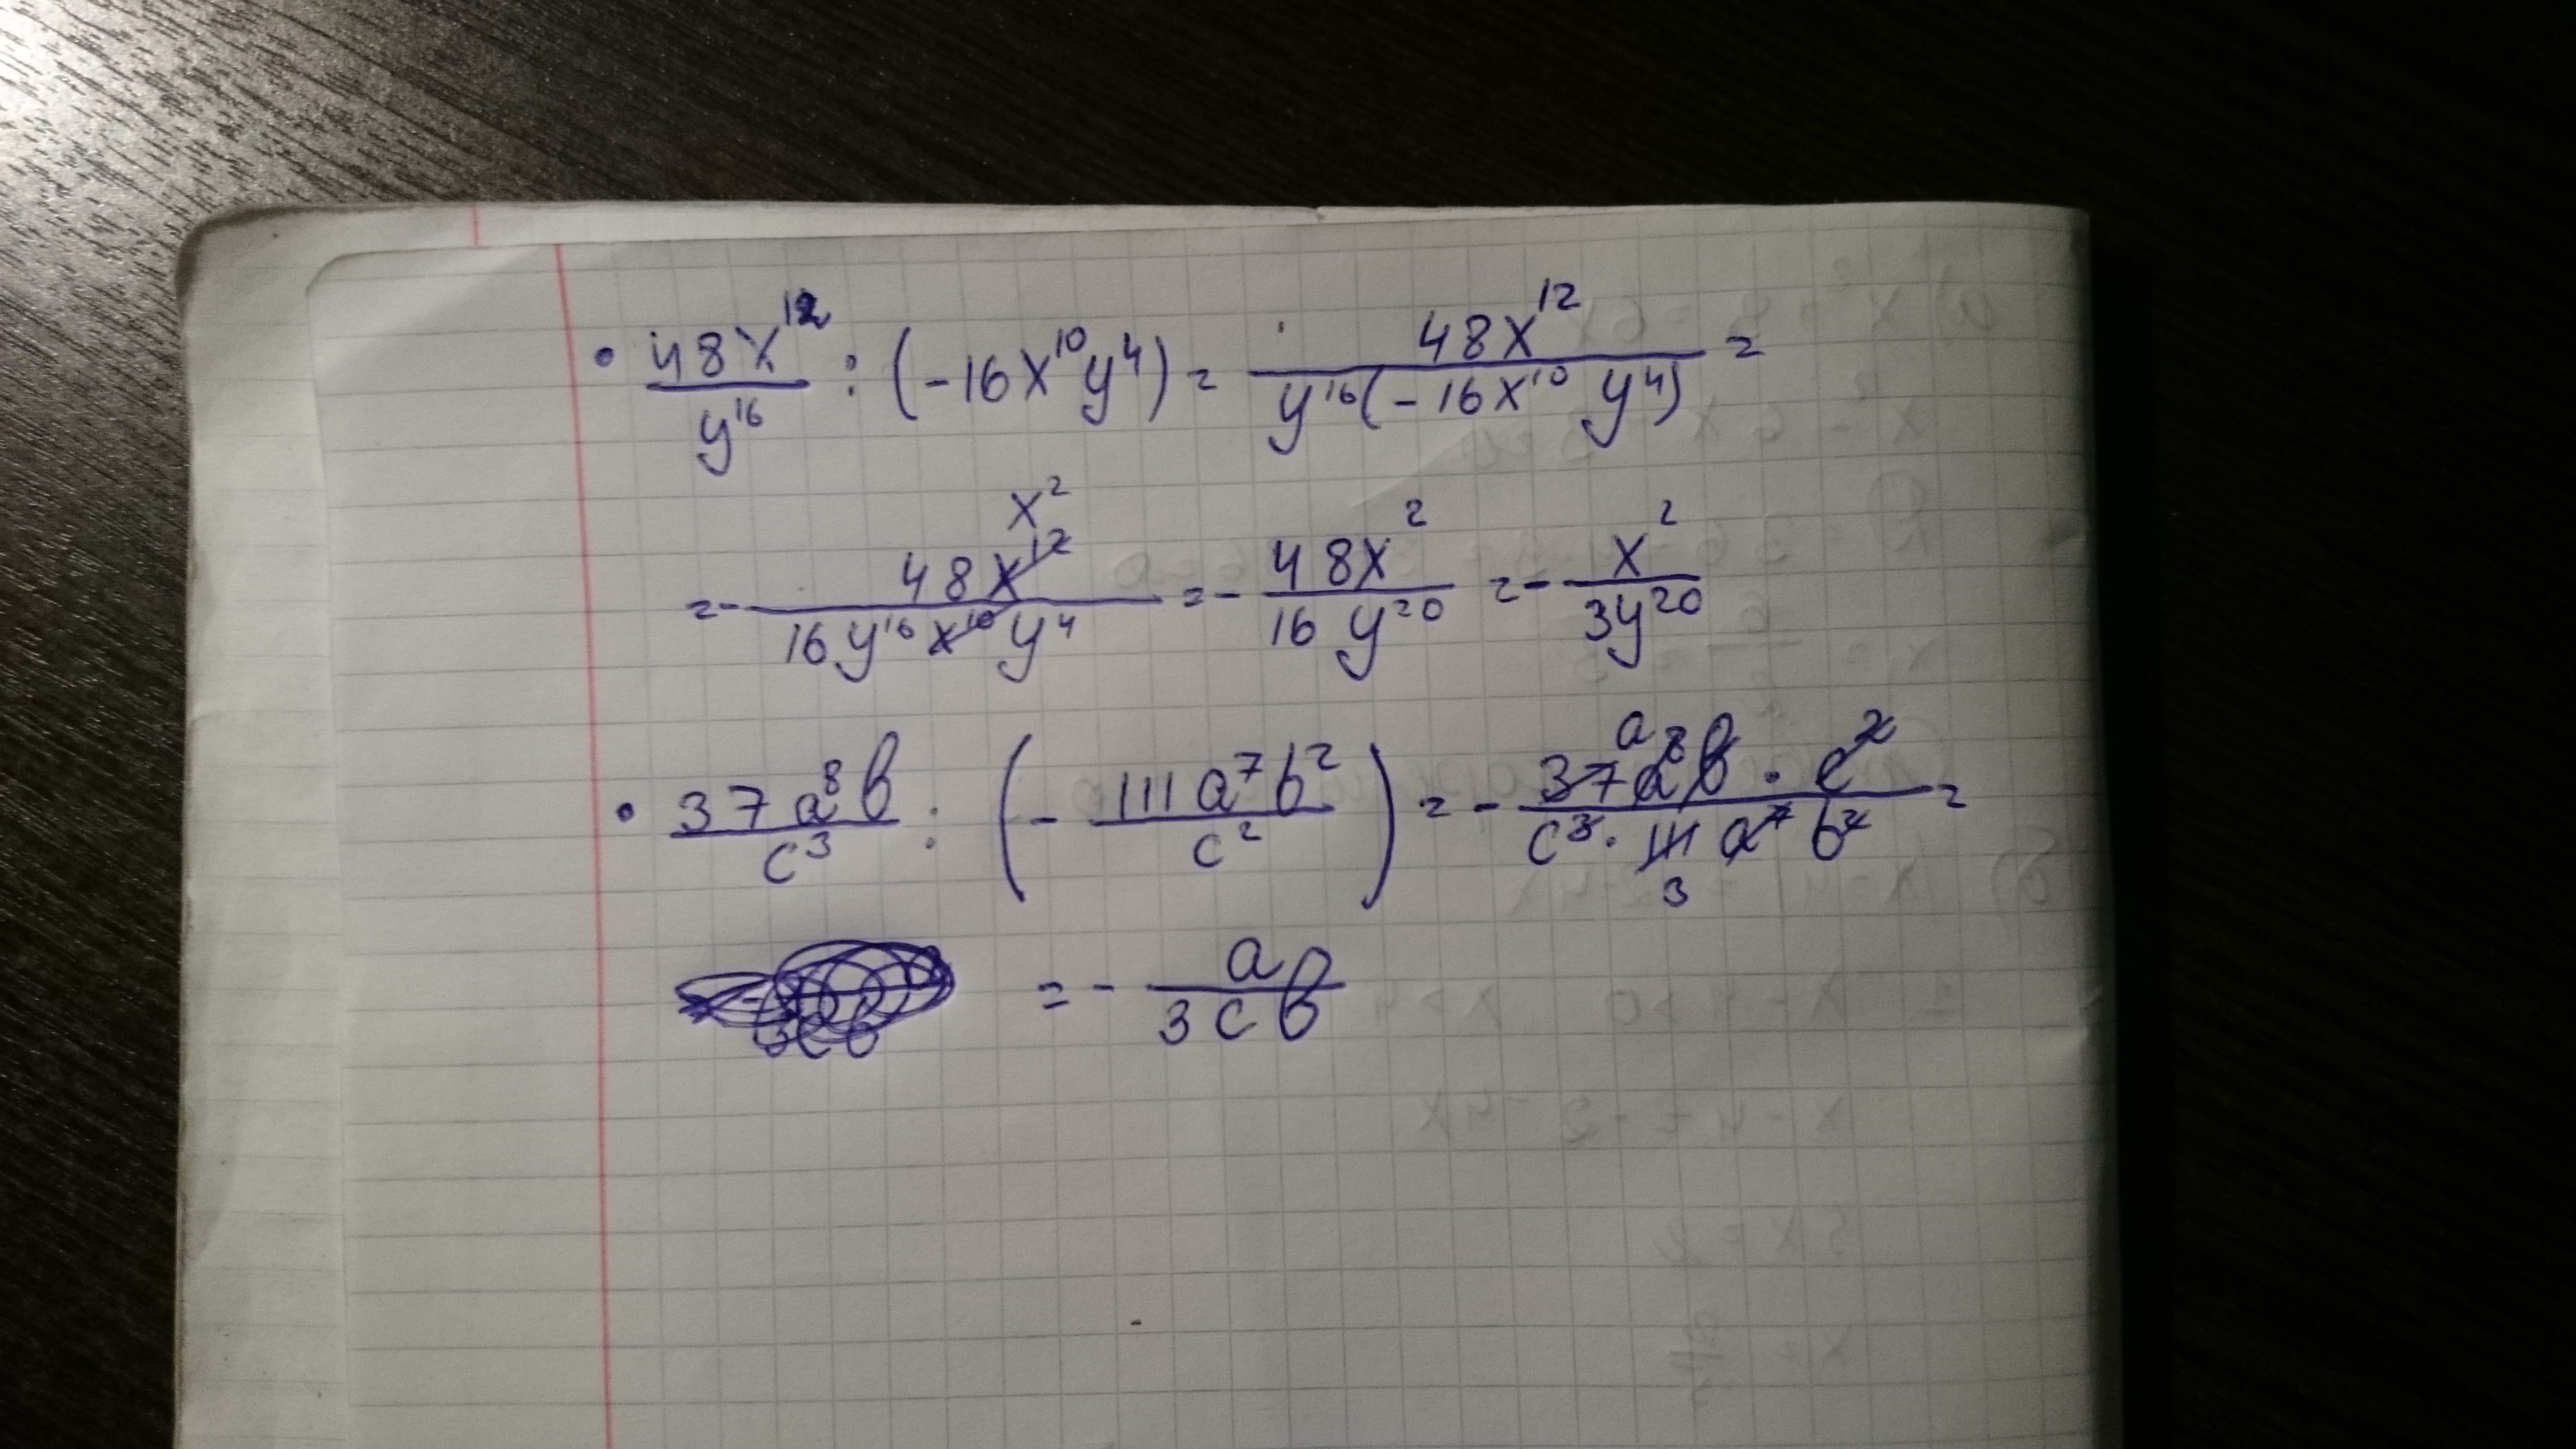 • 48x¹²/y¹⁶ : (-16x¹⁰y⁴) = 48x¹²/y¹⁶(-16x¹⁰y⁴) =
x²
= - 48x¹²/16y¹⁶x¹⁰y⁴ = - 48x²/16y²⁰ = - x²/3y²⁰
a
• 37a⁸b/c³ : (- 111a⁷b²/c²) = - 37a⁸b · c²/c³ · 111a⁷b² =
3
= - a/3cb